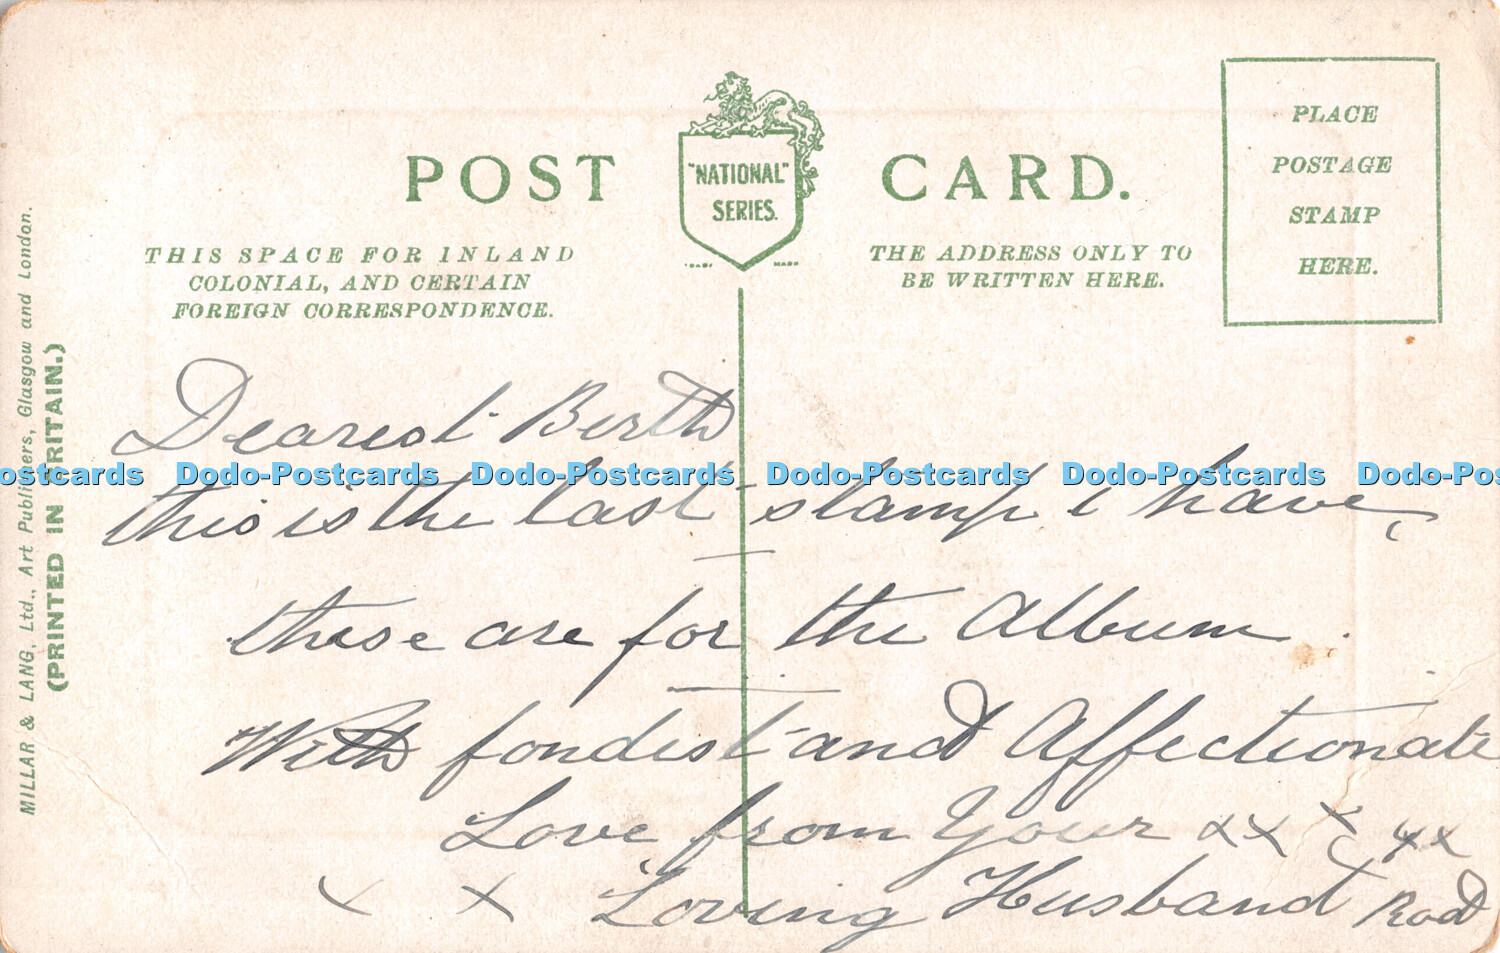 POST CARD.
"NATIONAL"
SERIES.
TRADE MARK
THIS SPACE FOR INLAND
COLONIAL, AND CERTAIN
FOREIGN CORRESPONDENCE.
THE ADDRESS ONLY TO
BE WRITTEN HERE.
PLACE
POSTAGE
STAMP
HERE.
MILLAR & LANG, Ltd., Art Publishers, Glasgow and London.
(PRINTED IN BRITAIN.)
Dearest Birth
this is the last stamp i have,
these are for the Album.
With fondest and Affectionate
Love from Your xx x xx
x x Loving Husband Rod
Dodo-Postcards Dodo-Postcards Dodo-Postcards Dodo-Postcards